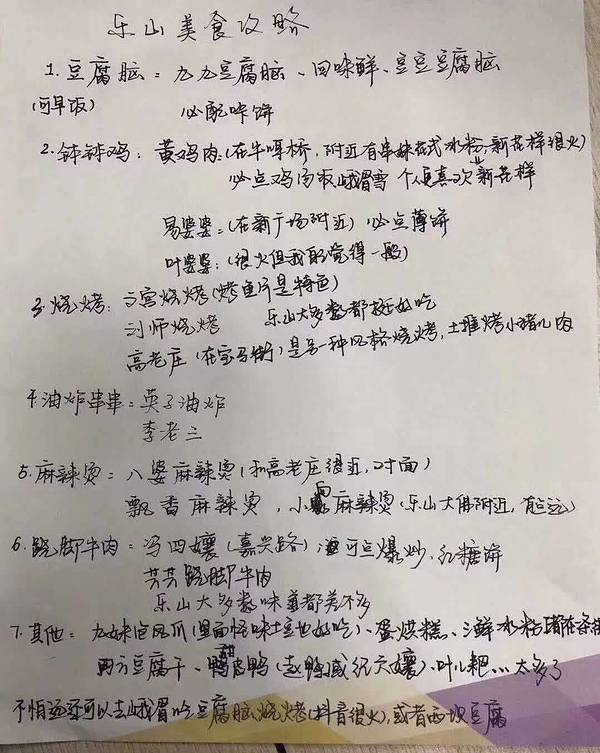 乐山美食攻略
1. 豆腐脑：九九豆腐脑、回味鲜、豆豆豆腐脑
(可早饭) 必配咔饼
2. 钵钵鸡：黄鸡肉：(在牛咡桥，附近有串妹花式冰粉，新花样很火)
必点鸡汤饭峨眉雪 个人更喜欢新花样
易婆婆：(在新广场附近) 必点薄饼
叶婆婆：(很火但我的觉得一般)
3. 烧烤：宫烧烤(烤鱼片是特色)
刘师烧烤 乐山大多数都挺好吃
高老庄(在宝马街)是另一种风格烧烤，土堆烤小猪儿肉
4. 油炸串串：英子油炸
李老三
5. 麻辣烫：八婆麻辣烫(和高老庄很近，对面)
飘香麻辣烫，小 麻辣烫(乐山大佛附近，有点远)
6. 跷脚牛肉：冯四孃(嘉兴路) 可点爆炒、红糖饼
芳芳跷脚牛肉
乐山大多数味道都差不多
7. 其他：九妹凤爪(里面怪味土豆也好吃)、蛋烘糕、三鲜冰粉
豆腐干、甜皮鸭(赵鸭或纪六孃)、叶儿粑... 太多了
不怕远还可以去峨眉吃豆腐脑、烧烤(抖音很火)，或者西坝豆腐